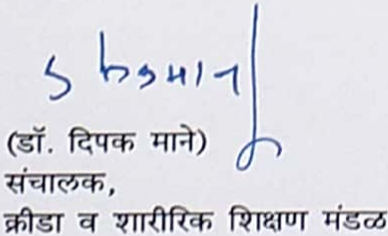 (डॉ. दिपक माने)
संचालक,
क्रीडा व शारीरिक शिक्षण मंडळ